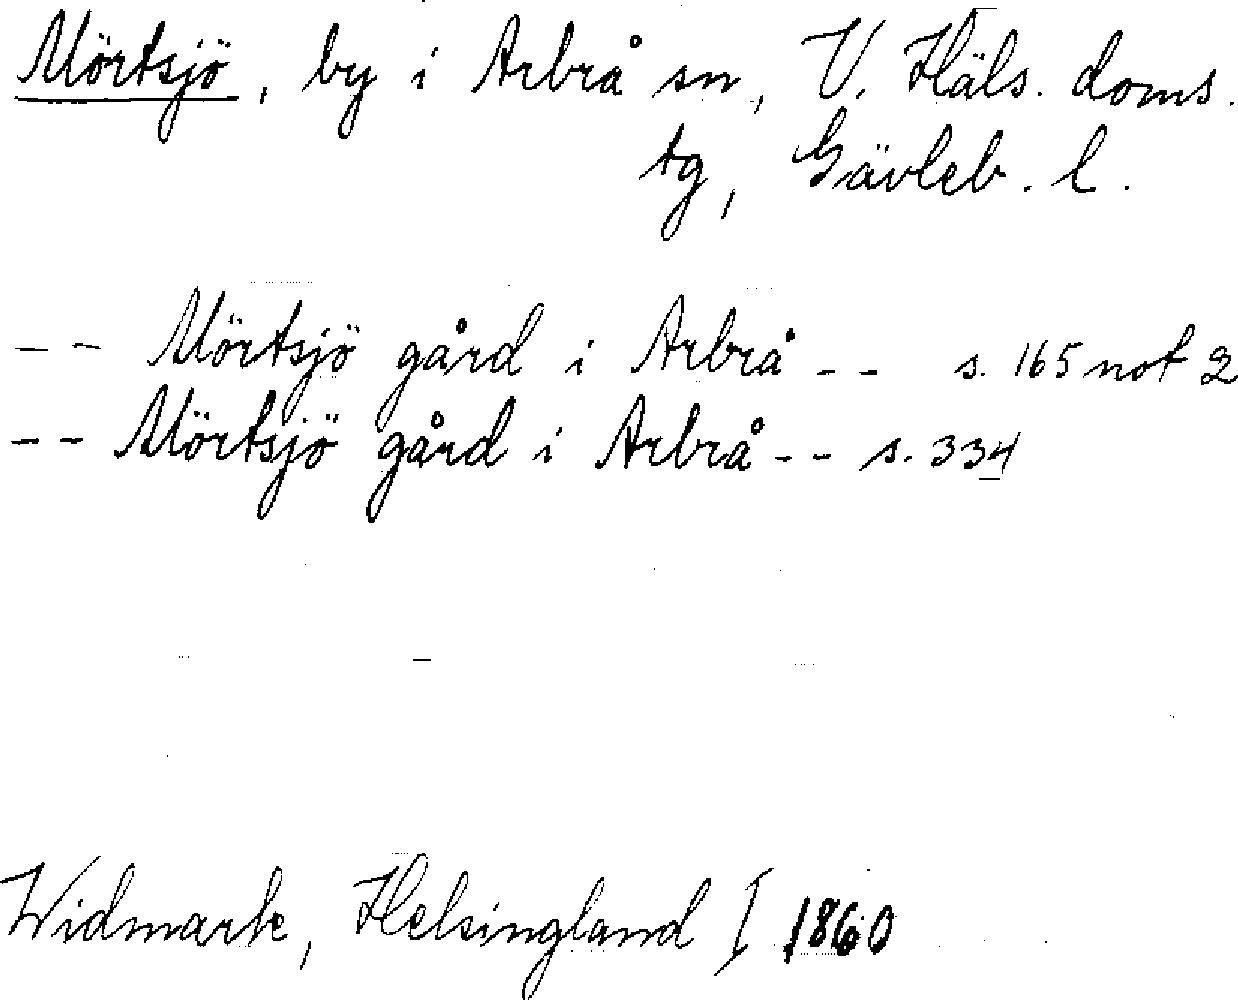 Mörtsjö, by i Arbrå sn, V. Häls. doms.
tg, Gävleb. l.
-- Mörtsjö gård i Arbrå -- s. 165 not 2
-- Mörtsjö gård i Arbrå -- s. 334
Widmark, Helsingland I 1860